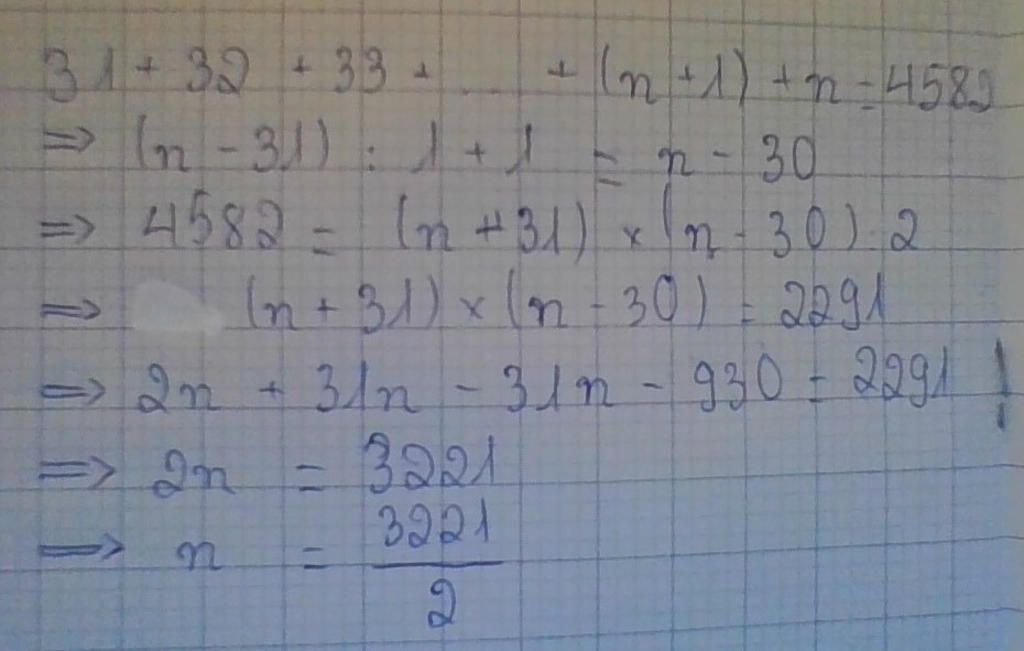 31 + 32 + 33 + ... + (n + 1) + n = 4582
⇒ (n - 31) : 1 + 1 = n - 30
⇒ 4582 = (n + 31) × (n - 30) . 2
⇒ (n + 31) × (n - 30) = 2291
⇒ 2n + 31n - 31n - 930 = 2291 !
⇒ 2n = 3221
⇒ n = 3221/2